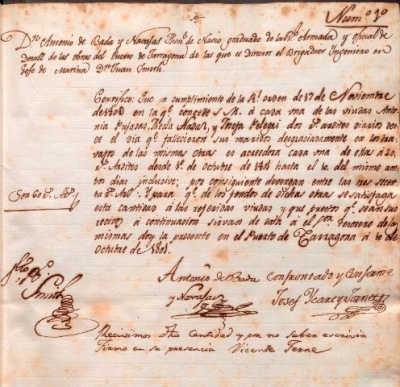 Num.º 1º
Dn. Antonio de Bada y Navajas Ten.te de Navio graduado de la Rl. Armada y oficial de
Detall de las obras del Puerto de Tarragona de las que es Director el Brigadier Ingeniero en
Jefe de Marina Dn. Juan Smith.
Certifico: Que en cumplimiento de la Rl. orden de 17 de Noviembre
de 1800 en la qe. concede S. M. á cada una de las viudas Anto
nia Pujadas, Tecla y Josefa Pelegri dos Rs. diarios
el dia qe. fallecieron sus maridos desgraciadamente en
de las mismas obras es acredora cada una de ellas á 20
Rs. desde 1º de Octubre de 1801 hasta el 10 del mismo am
bos dias inclusive; por consiguiente devengan entre las tres
Son 60 Rs. Vn.
Y para qe. de los fondos de dichas obras se satisfaga
esta cantidad á las referidas viudas y que puesto qe. sea su
recivo á continuacion sirva de data á el Sor. Tesorero de las
mismas doy la presente en el Puerto de Tarragona á 10 de
Octubre de 1801.
Smith
Antonio de Bada
y Navajas
Confrontado y Conforme
Josef Ycart
Recivimos dha Cantidad y por no saber escrivir
Firmo en su presencia Vicente Ferré